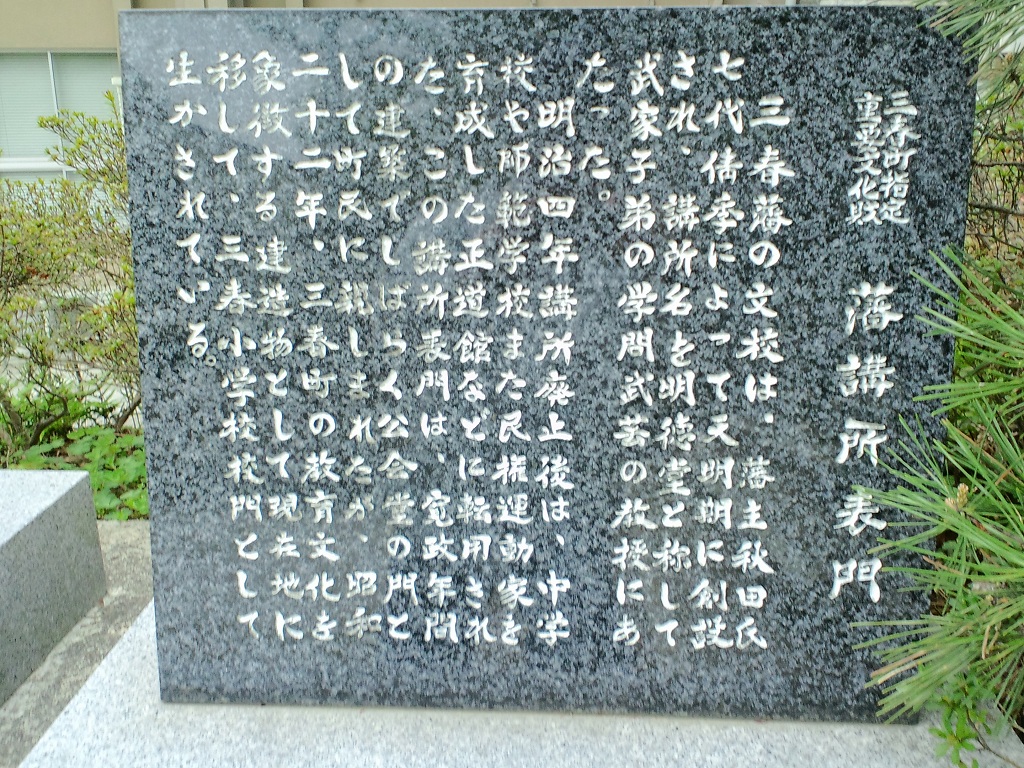 三春町指定
重要文化財
藩講所表門
三春藩の文校は、藩主秋田氏
七代倩季によって天明期に創設
され、講所名を明徳堂と称して
武家子弟の学問武芸の教授にあ
たった。
明治四年講所廃止後は、中学
校や師範学校また民権運動家を
育成した正道館などに転用され
た、この講所表門は、寛政年間
の建築でしばらく公会堂の門と
して町民に親しまれたが、昭和
二十二年、三春町の教育文化を
象徴する建造物として現在地に
移して、三春小学校校門として
生かされている。